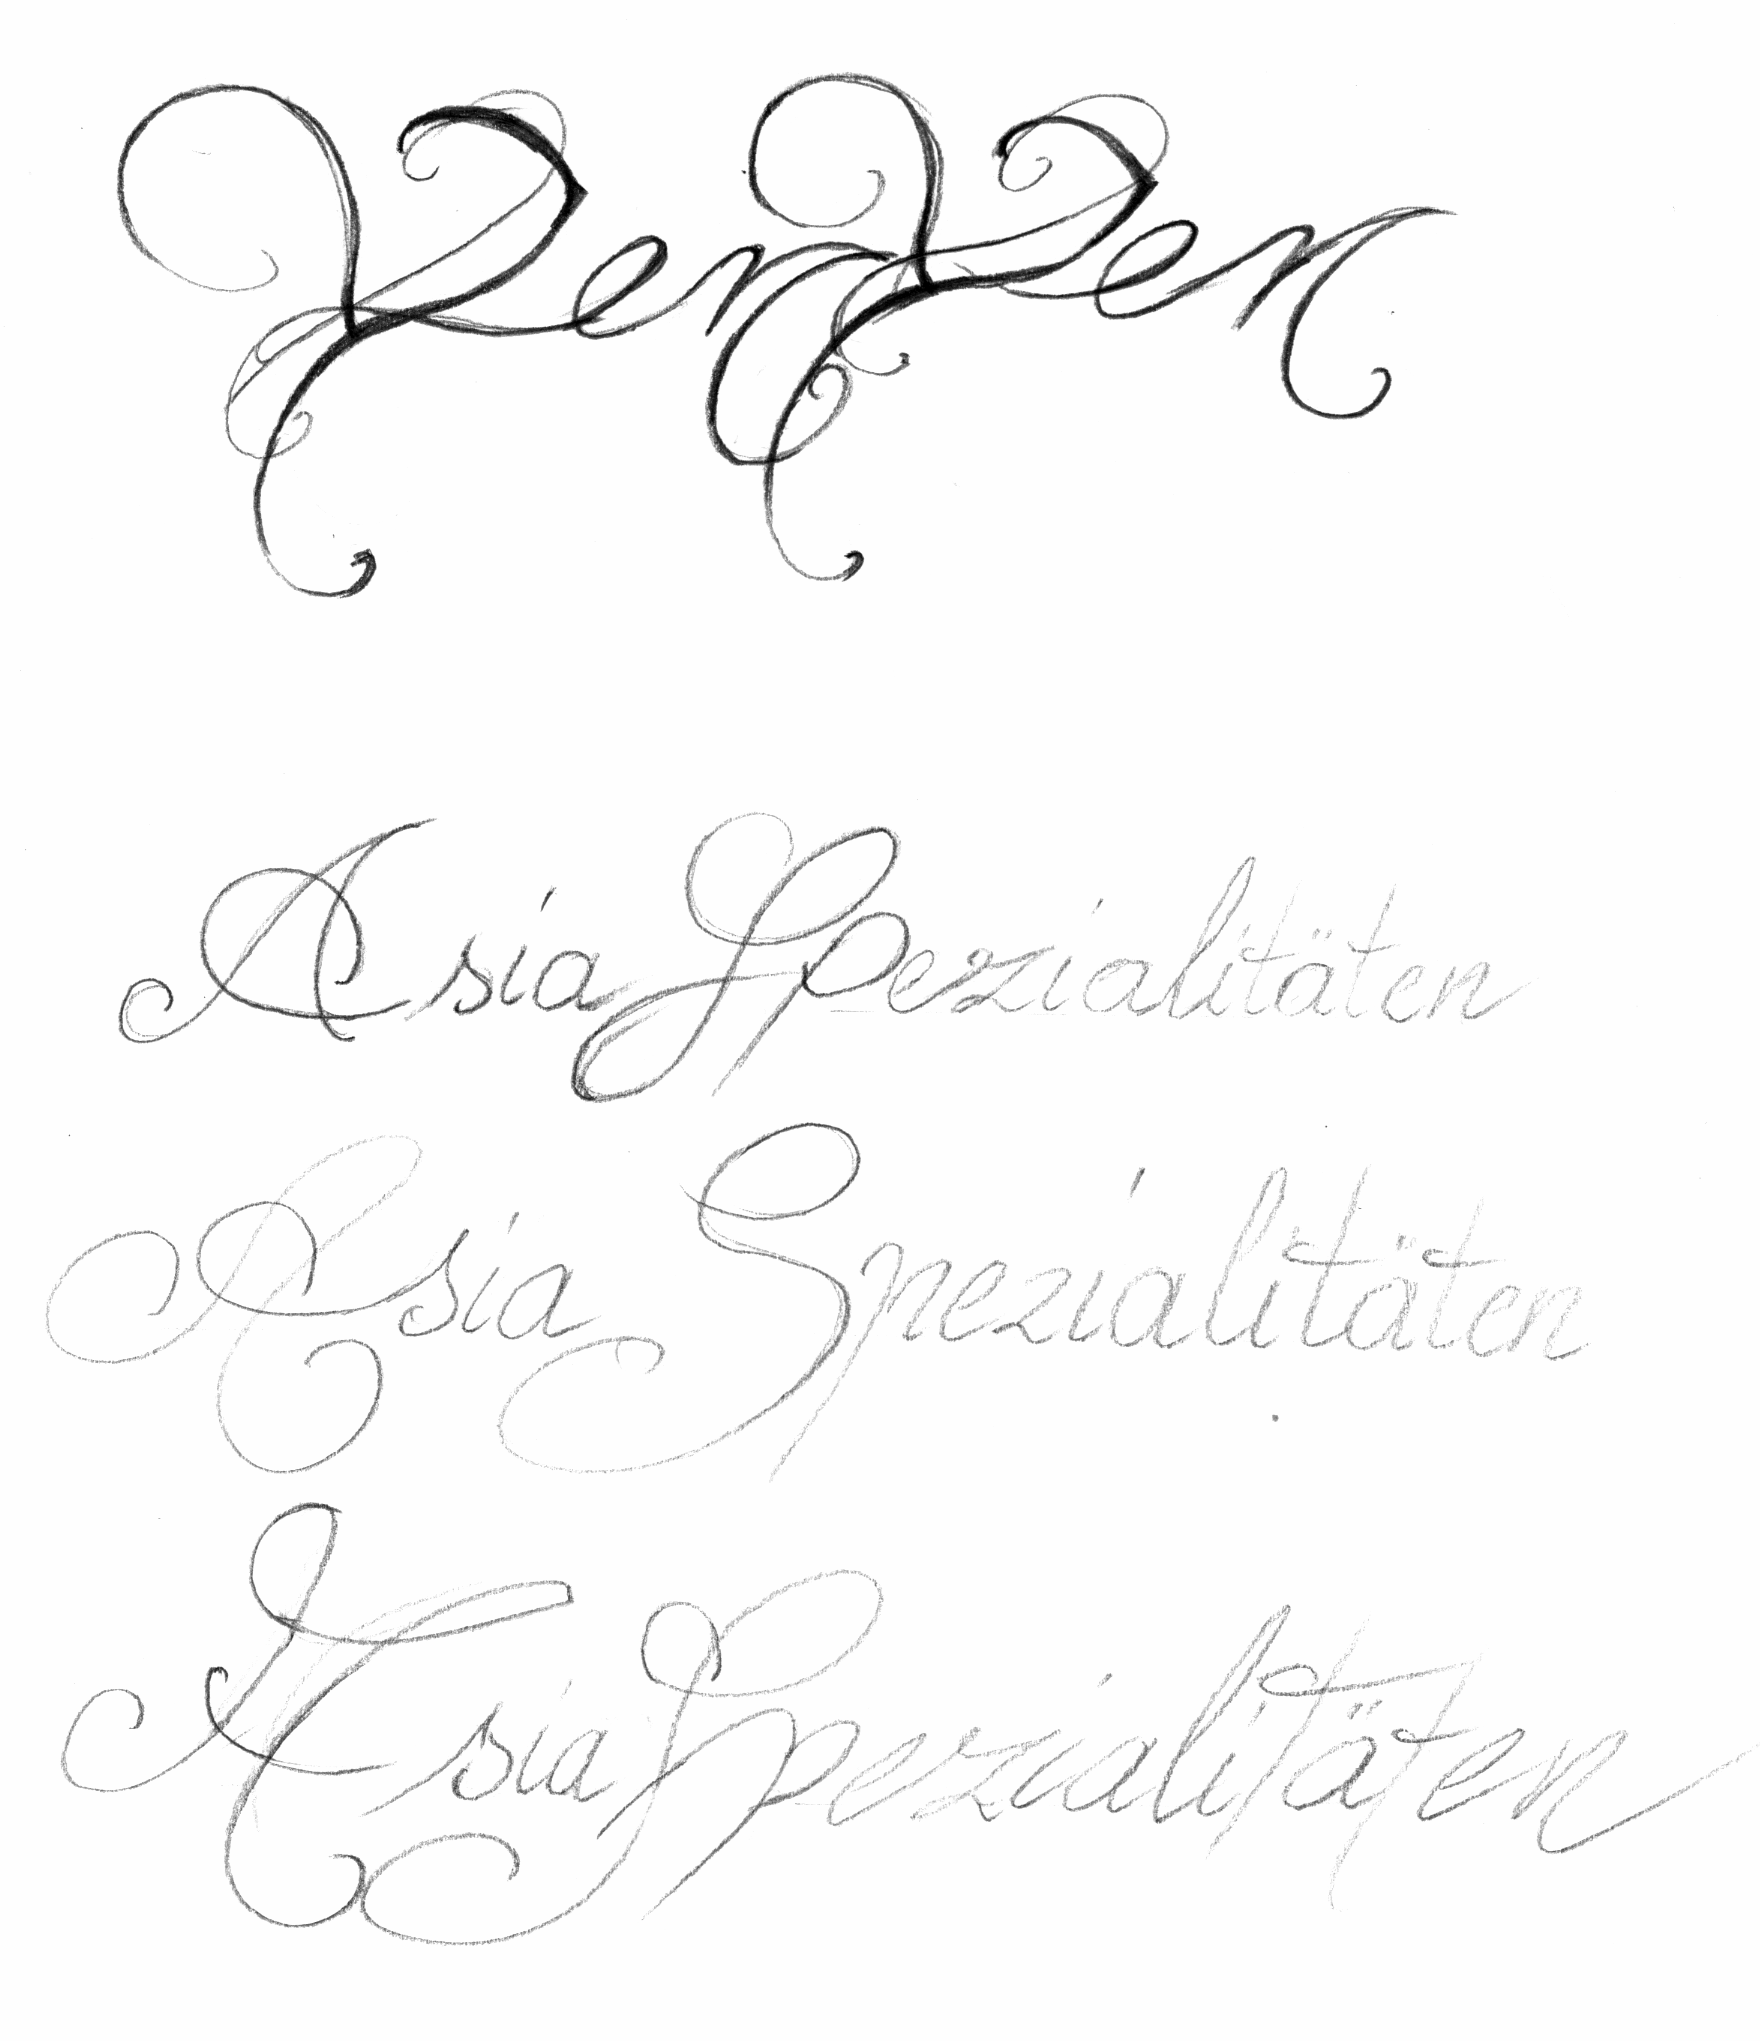 Asia Spezialitäten
Asia Spezialitäten
Asia Spezialitäten